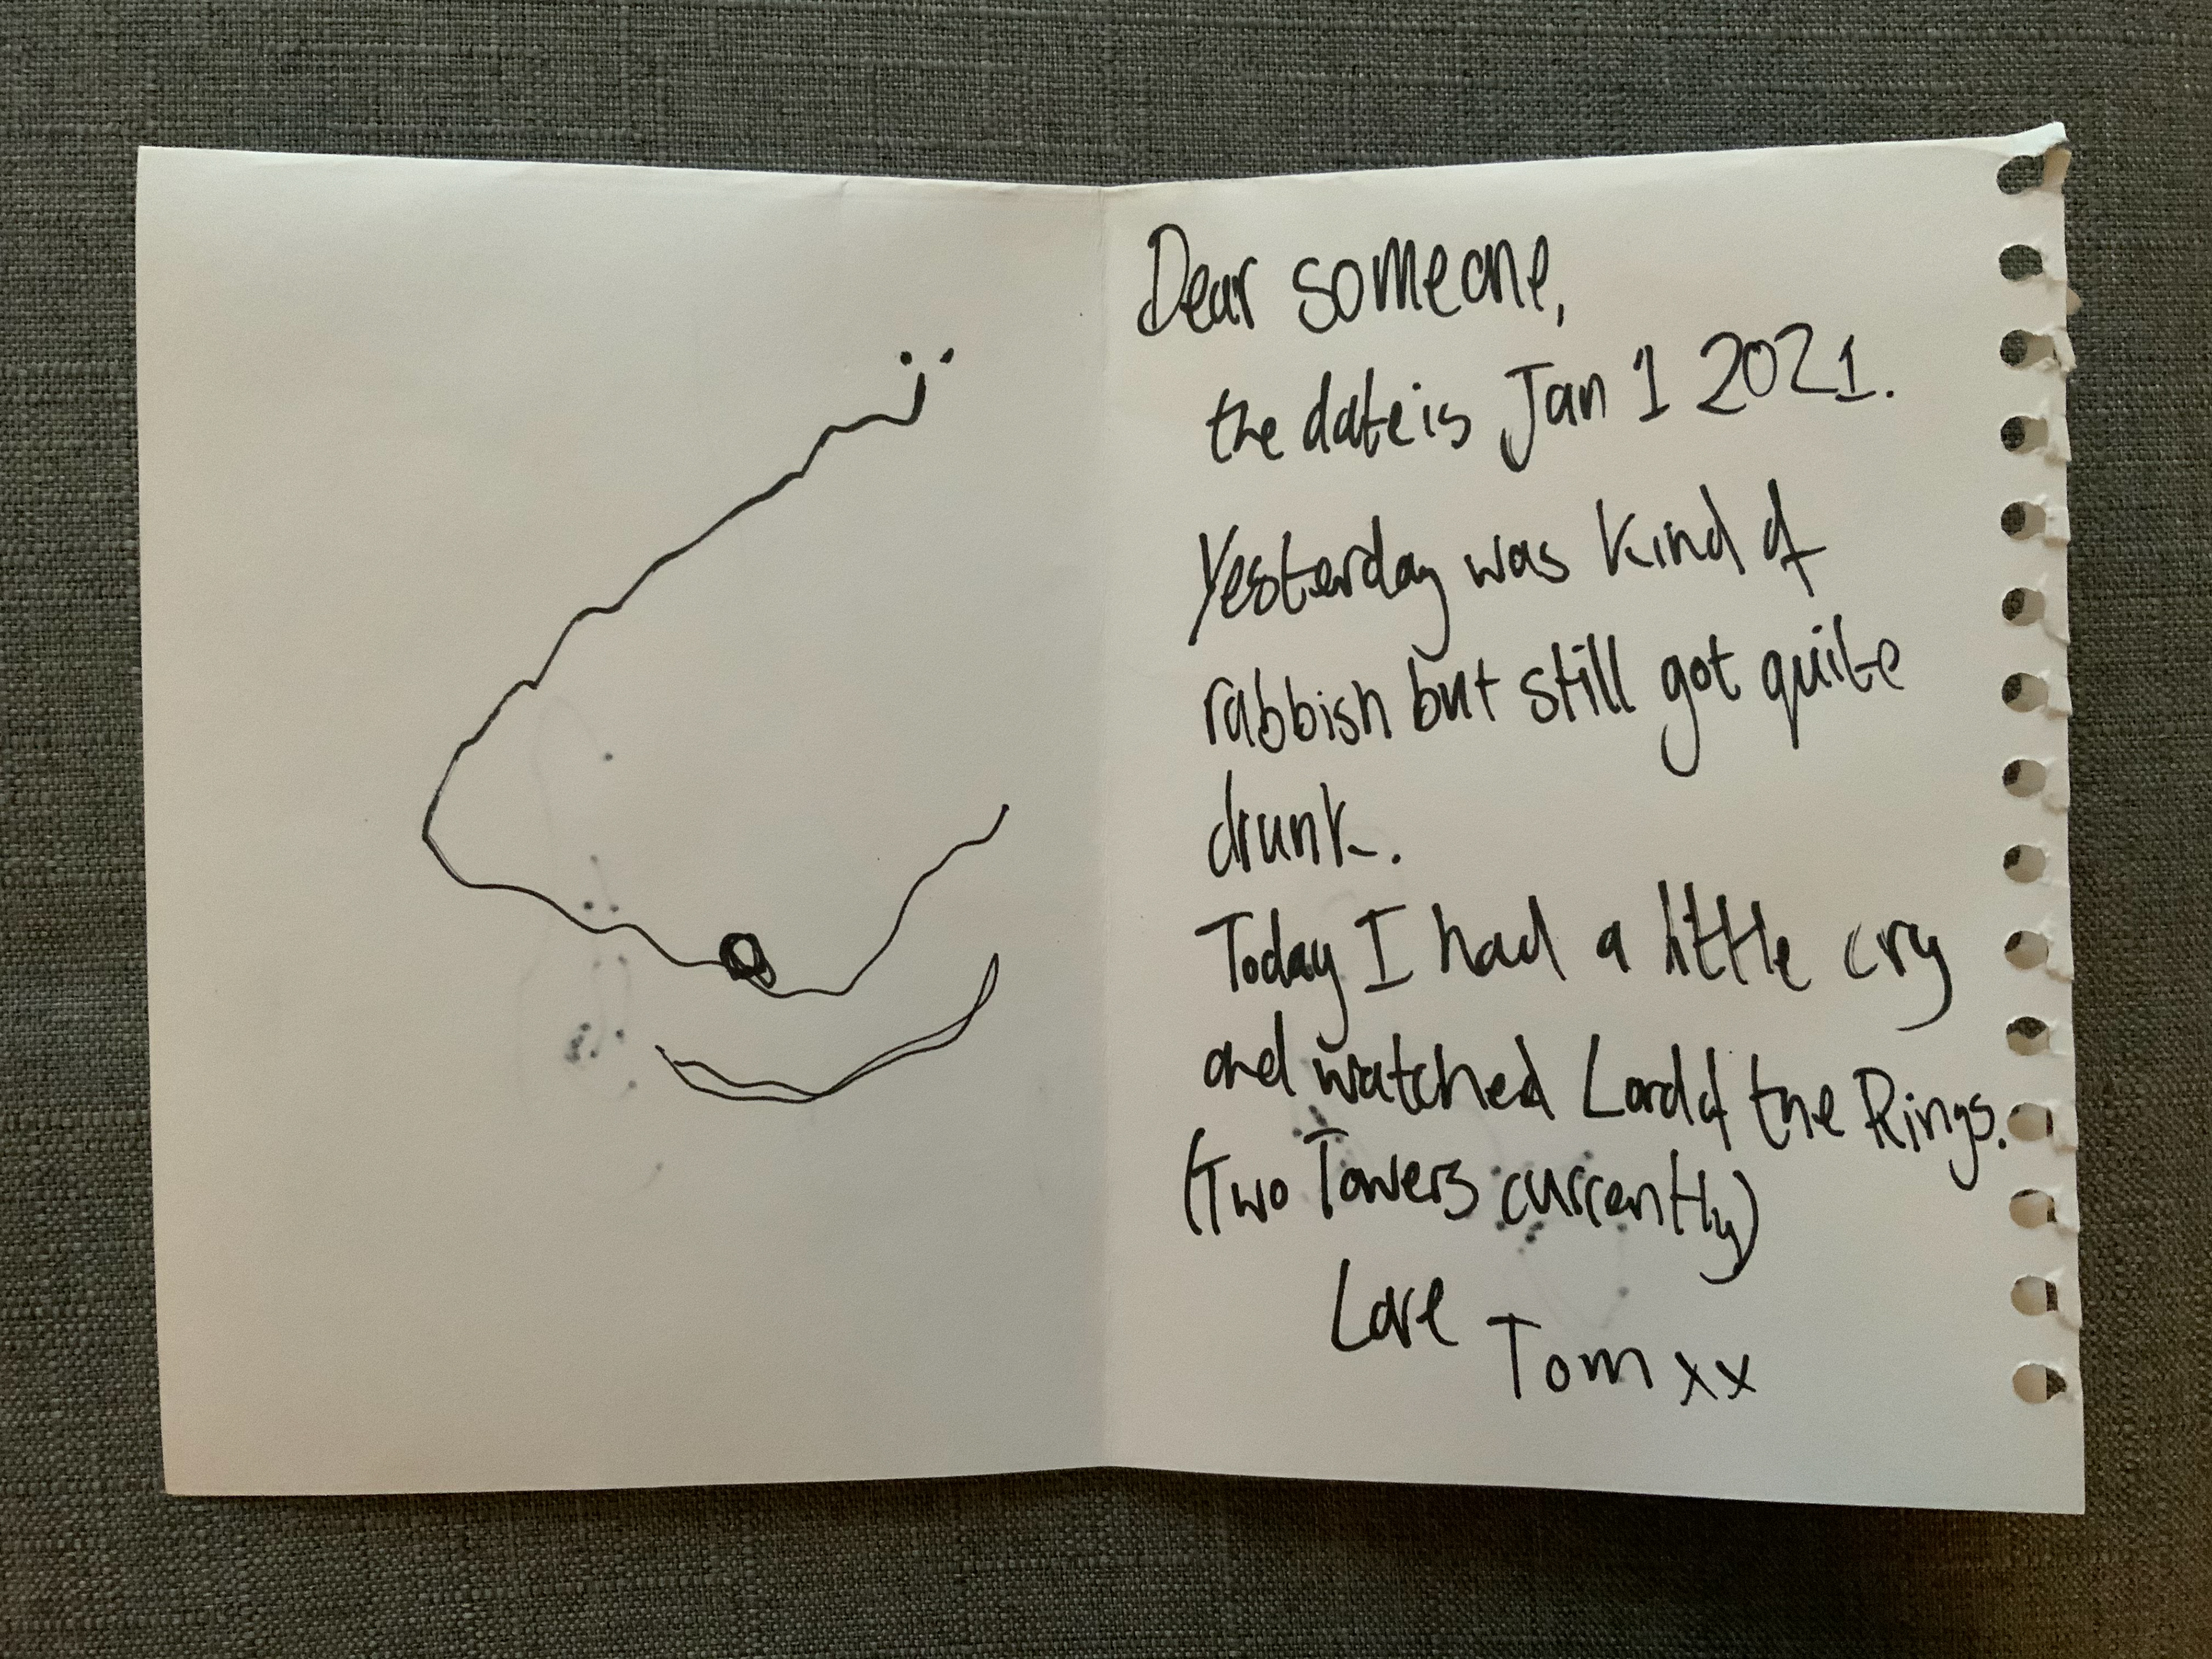 Dear someone,
the date is Jan 1 2021.
Yesterday was kind of
rabbish but still got quite
drunk.
Today I had a little cry
and watched Lord of the Rings.
(Two Towers currently)
Love
Tom xx